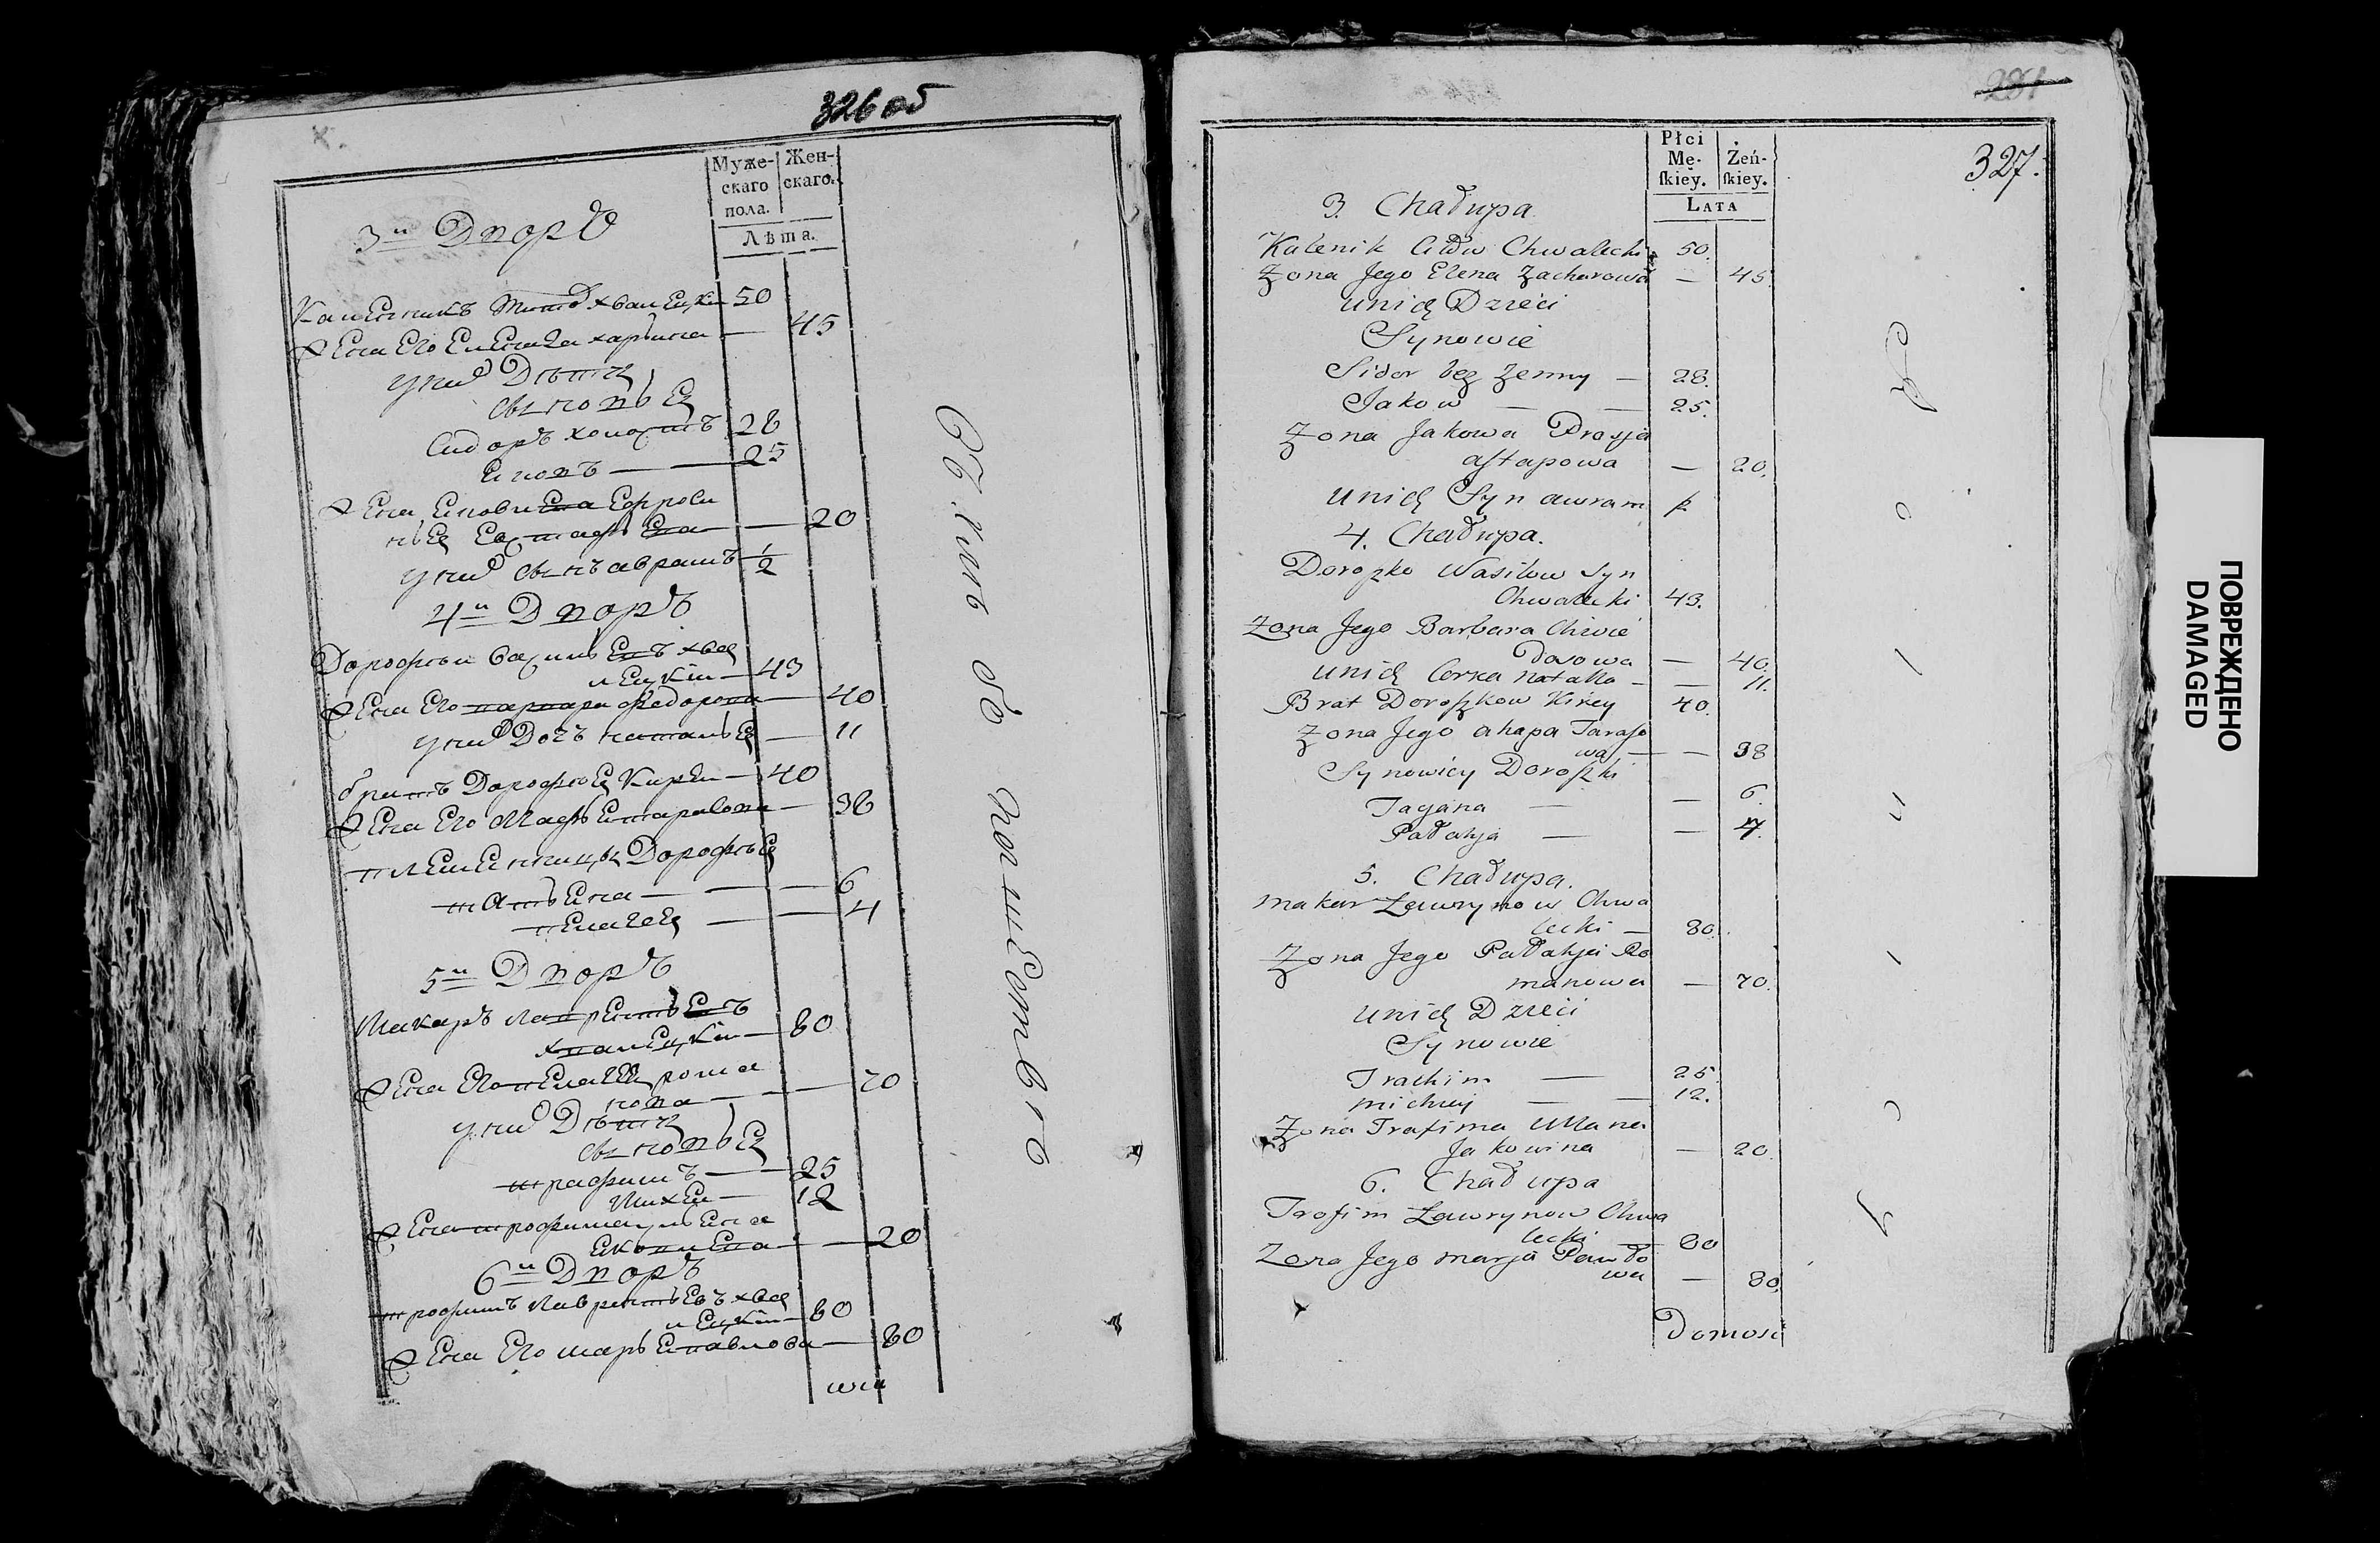 326 об
Муже-
скаго
пола.
Жен-
скаго.
Лѣта.
3й Дворъ
Каленикъ Титовъ хвалецки 50
Жена Его Елена захарьина — 45
у них Дѣти
сыновья
Сидоръ холостъ 28
Яковъ — 25
Жена Яковлева Ефроси
нья Евстафьева — 20
у них сынъ аврамъ 1/2
4й Дворъ
Дорофеи василь Евъ хва
лецкiи — 43
Жена Его варвара федорова — 40
у них Дочь наталья — 11
братъ Дорофея Кирей — 40
Жена Его Агафья тарасова — 38
племенницы Дорофея
татьяна — 6
Пелагея — 4
5й Дворъ
Макаръ лаврентьевъ
хвалецкiи — 80
Жена Его пелагея рома
нова — 70
у них Дѣти
сыновья
трафимъ — 25
Михей — 12
Жена трофима ульяна
яковлева — 20
6й Дворъ
трофимъ лаврентьевъ хва
лецкiи — 80
Жена Его марья павлова — 80
Помѣстье
281
327.
Płci
Mę-
ſkiey.
Żeń-
ſkiey.
LATA
3. Chałupa
Kalenik Citow Chwalecki 50.
Zona Jego Elena Zacharowa — 45.
Unich Dzieci
Synowie
Sidor bez Zenny — 28.
Jakow — — 25.
Zona Jakowa Prosja
astapowa — 20.
Unich Syn awram ½
4. Chałupa.
Doroszko Wasilow Syn
Chwalecki 43.
Zona Jego Barbara Chwie
dorowa — 40.
Unich Corka natalla — — 11.
Brat Doroszkow Kirey 40.
Zona Jego ahapa Taraso
wa — — 38
Synowicy Doroszki
Tacjana — — 6.
Pałahja — — 4.
5. Chałupa.
makar Ławrynow Chwa
lecki — 80.
Zona Jego Pałahja Ro
manowa — 70.
Unich Dzieci
Synowie
Trachim — 25.
michiey — — 12.
Zona Trafima Ullana
Jakowina — 20.
6. Chałupa
Trofim Ławrynow Chwa
lecki — 80
Zona Jego marja Pawło
wa — 80.
Domosi
ПОВРЕЖДЕНО
DAMAGED